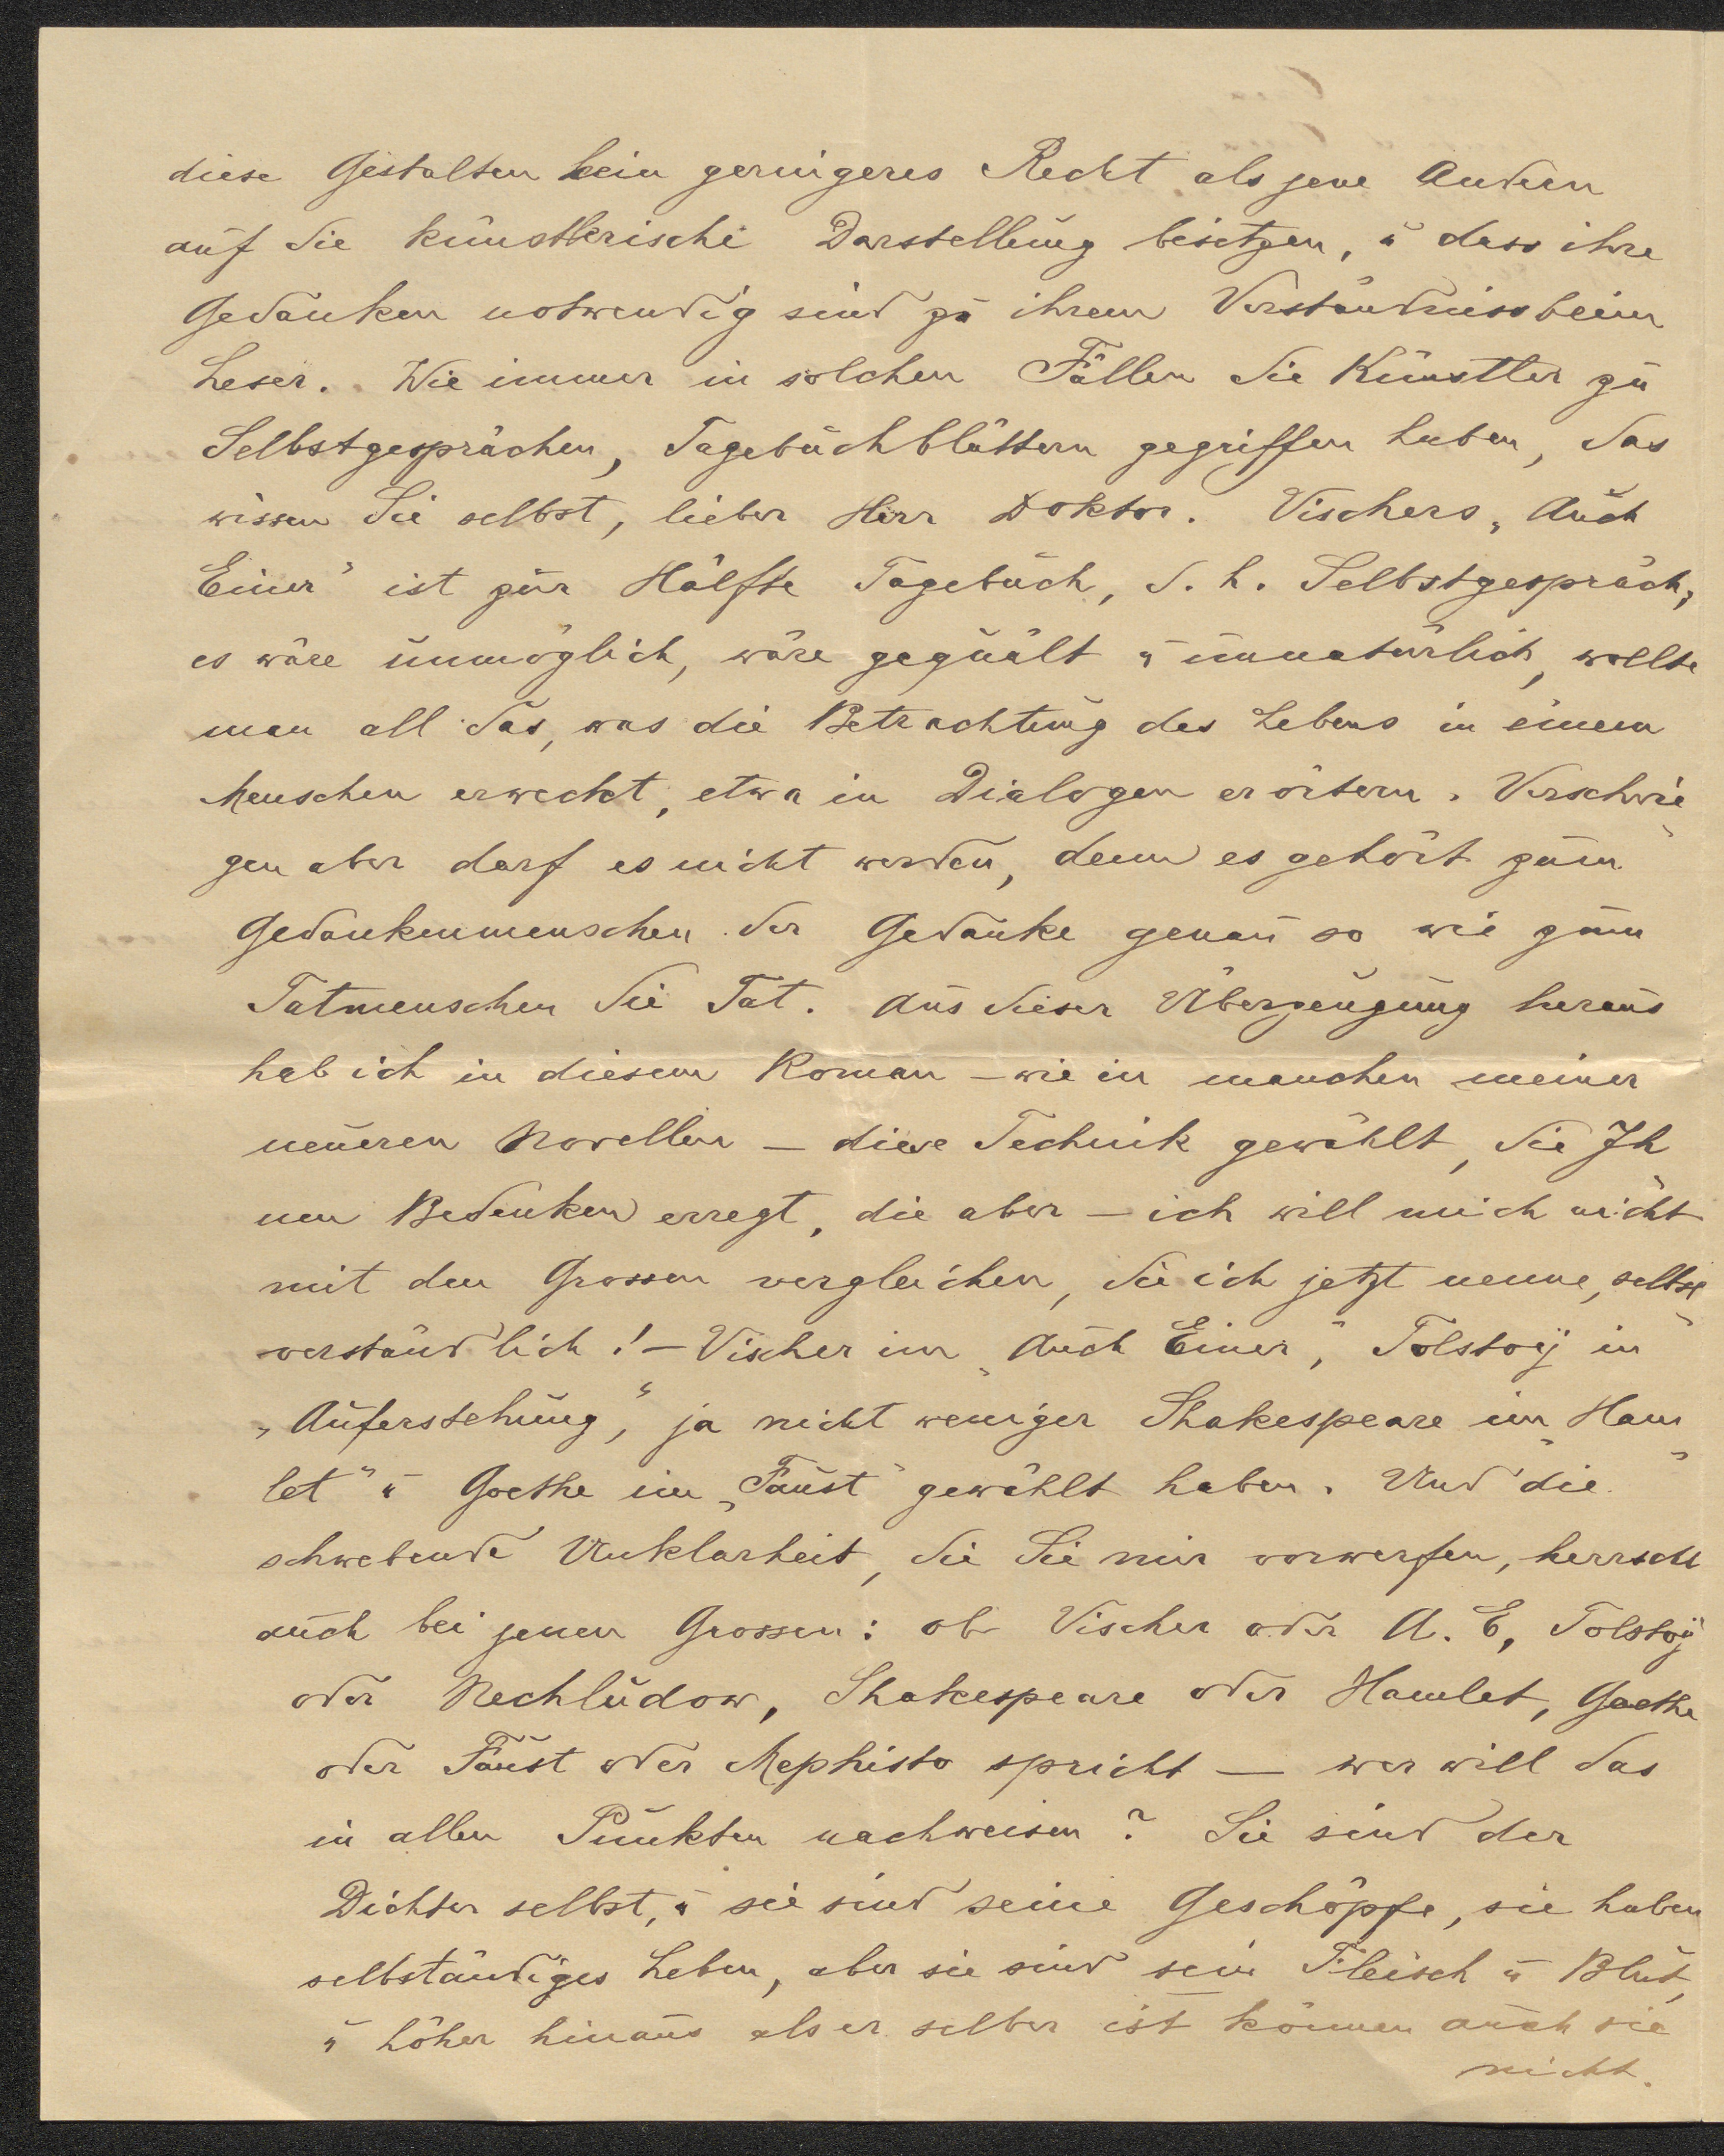 diese Gestalten kein geringeres Recht als jene Andern
auf die künstlerische Darstellung besitzen, u dass ihre
Gedanken notwendig sind zu ihrem Verständniss beim
Leser. Wie immer in solchen Fällen die Künstler zu
Selbstgesprächen, Tagebuchblättern gegriffen haben, das
wissen Sie selbst, lieber Herr Doktor. Vischers „Auch
Einer" ist zur Hälfte Tagebuch, d. h. Selbstgespräch,
es wäre unmöglich, wäre gequält u unnatürlich, wollte
man all das, was die Betrachtung des Lebens in einem
Menschen erweckt, etwa in Dialogen erörtern. Verschwie
gen aber darf es nicht werden, denn es gehört zum
Gedankenmenschen der Gedanke genau so wie zum
Tatmenschen die Tat. Aus dieser Überzeugung heraus
hab ich in diesem Roman – wie in manchen meiner
neueren Novellen – diese Technik gewählt, die Ih
nen Bedenken erregt, die aber – ich will mich nicht
mit den Grossen vergleichen, die ich jetzt nenne, selbst
verständlich! – Vischer im „Auch Einer", Tolstoij in
„Auferstehung", ja nicht weniger Shakespeare im „Ham
let" u Goethe im „Faust" gewählt haben. Und die
schwebende Unklarheit, die Sie mir vorwerfen, herrscht
auch bei jenen Grossen: ob Vischer oder A. E., Tolstoij
oder Nechludow, Shakespeare oder Hamlet, Goethe
oder Faust oder Mephisto spricht — wer will das
in allen Punkten nachweisen? Sie sind der
Dichter selbst, u sie sind seine Geschöpfe, sie haben
selbständiges Leben, aber sie sind sein Fleisch u Blut,
u höher hinaus als er selber ist können auch sie
nicht.